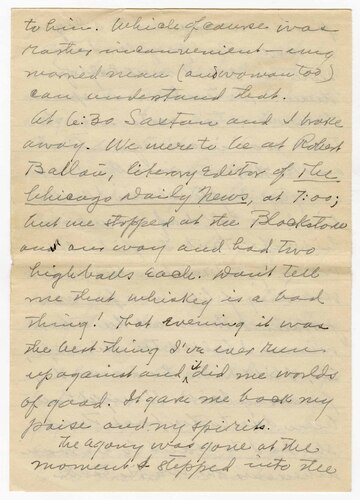 to him. Which of course was
rather inconvenient — any
married man (and woman too)
can understand that.
At 6:30 Saxton and I broke
away. We were to be at Robert
Ballou, literary editor of The
Chicago Daily News, at 7:00;
but we stopped at the Blackstone
on our way and had two
highballs each. Don't tell
me that whiskey is a bad
thing! That evening it was
the best thing I've ever run
up against and it did me worlds
of good. It gave me back my
poise and my spirits.
The agony was gone at the
moment I stepped into the